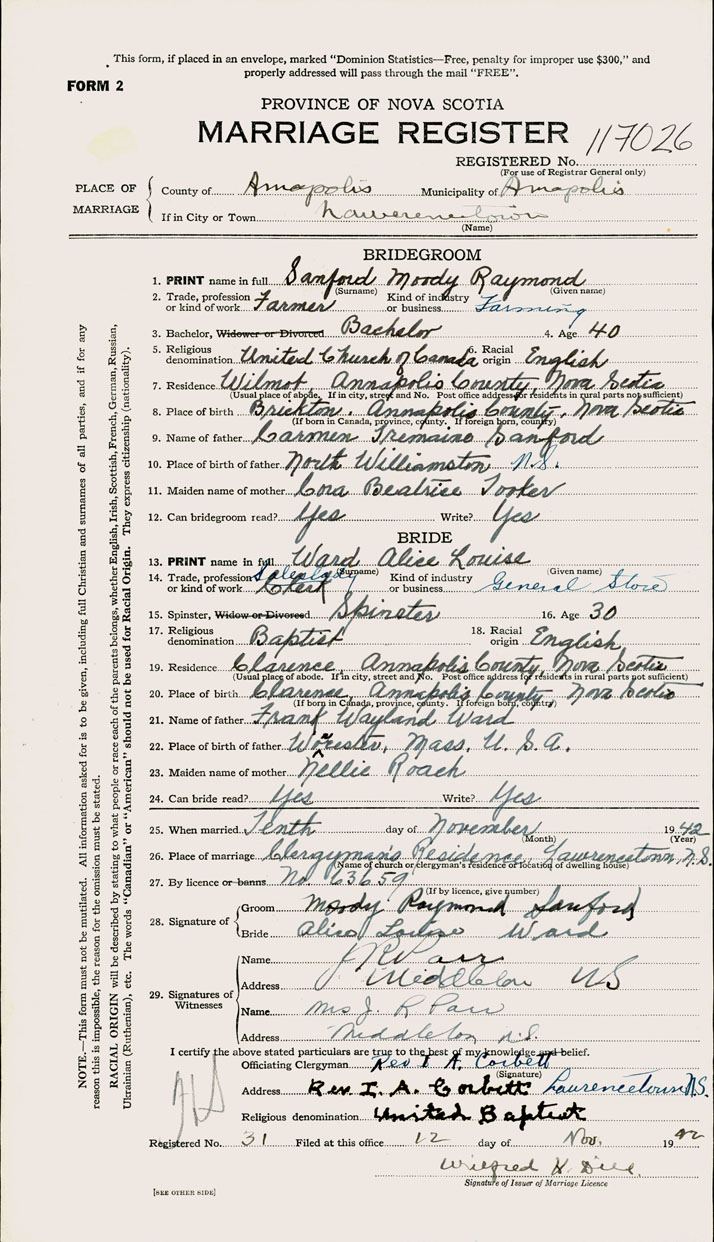 This form, if placed in an envelope, marked "Dominion Statistics—Free, penalty for improper use $300," and
properly addressed will pass through the mail "FREE".
FORM 2
PROVINCE OF NOVA SCOTIA
MARRIAGE REGISTER 117026
REGISTERED No.
(For use of Registrar General only)
PLACE OF MARRIAGE
County of Annapolis Municipality of Annapolis
If in City or Town Lawerencetown
(Name)
BRIDEGROOM
1. PRINT name in full Sanford Moody Raymond
(Surname) (Given name)
2. Trade, profession or kind of work Farmer Kind of industry or business Farming
3. Bachelor, Widower or Divorced Bachelor 4. Age 40
5. Religious denomination United Church of Canada 6. Racial origin English
7. Residence Wilmot, Annapolis County, Nova Scotia
(Usual place of abode. If in city, street and No. Post office address for residents in rural parts not sufficient)
8. Place of birth Brickton, Annapolis County, Nova Scotia
(If born in Canada, province, county. If foreign born, country)
9. Name of father Carmen Tremaine Sanford
10. Place of birth of father North Williamston N.S.
11. Maiden name of mother Cora Beatrice Tooker
12. Can bridegroom read? Yes Write? Yes
BRIDE
13. PRINT name in full Ward Alice Louise
(Surname) (Given name)
14. Trade, profession or kind of work Saleslady Clerk Kind of industry or business General Store
15. Spinster, Widow or Divorced Spinster 16. Age 30
17. Religious denomination Baptist 18. Racial origin English
19. Residence Clarence, Annapolis County, Nova Scotia
(Usual place of abode. If in city, street and No. Post office address for residents in rural parts not sufficient)
20. Place of birth Clarence, Annapolis County Nova Scotia
(If born in Canada, province, county. If foreign born, country)
21. Name of father Frank Wayland Ward
22. Place of birth of father Worcester, Mass. U.S.A.
23. Maiden name of mother Nellie Roach
24. Can bride read? Yes Write? Yes
25. When married Tenth day of November 1942
(Month) (Year)
26. Place of marriage Clergyman's Residence, Lawrencetown, N.S.
(Name of church or clergyman's residence or location of dwelling house)
27. By licence or banns No. 63659
(If by licence, give number)
28. Signature of
Groom Moody Raymond Sanford
Bride Alice Louise Ward
29. Signatures of Witnesses
Name J R Parr
Address Middleton NS
Name Mrs J. R Parr
Address Middleton N.S.
I certify the above stated particulars are true to the best of my knowledge and belief.
Officiating Clergyman Rev I. A. Corbett
(Signature)
Address Rev. I. A. Corbett Lawrencetown N.S.
Religious denomination United Baptist
Registered No. 31 Filed at this office 12 day of Nov. 1942
Wilfred H. Dill
Signature of Issuer of Marriage Licence
[SEE OTHER SIDE]
NOTE.—This form must not be mutilated. All information asked for is to be given, including full Christian and surnames of all parties, and if for any
reason this is impossible, the reason for the omission must be stated.
RACIAL ORIGIN will be described by stating to what people or race each of the parents belongs, whether English, Irish, Scottish, French, German, Russian,
Ukrainian (Ruthenian), etc. The words "Canadian" or "American" should not be used for Racial Origin. They express citizenship (nationality).